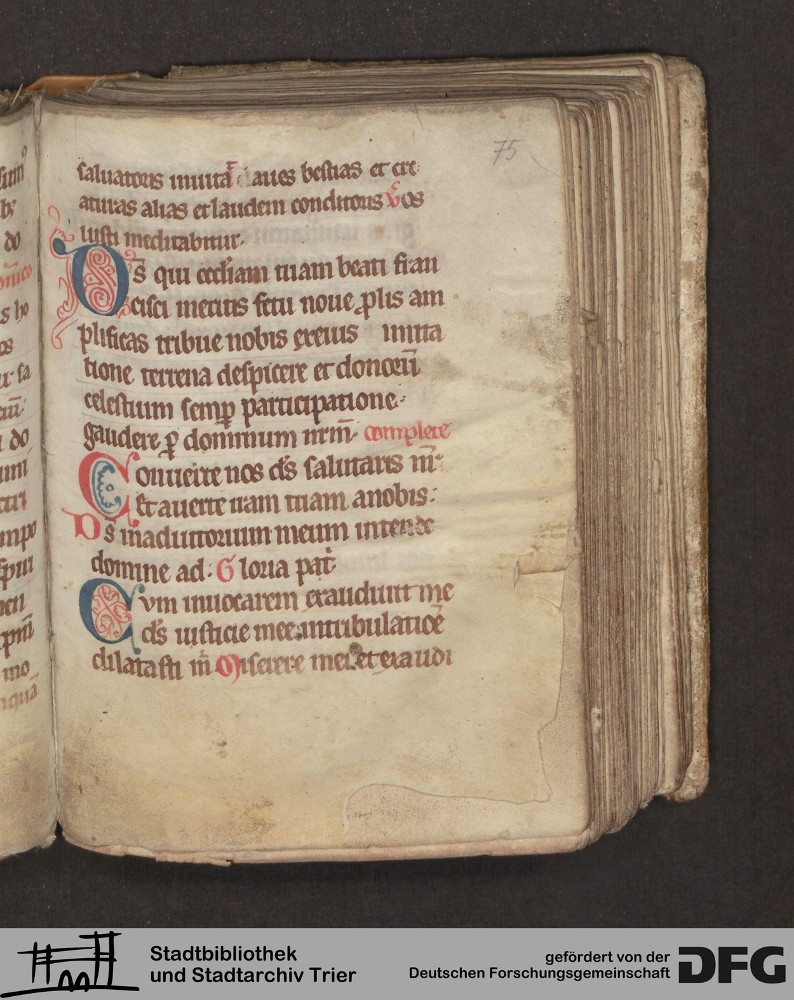 75
saluatoris inuitã aues bestias et cre
aturas alias et laudem conditoris Vͦs
iusti meditabitur.
Ds̄ qui eccl̄iam tuam beati fran
cisci meritis fetu noue ꝓlis am
plificas tribue nobis ex eius imita
tione terrena despicere et donorū
celestium semꝑ participatione.
gaudere ꝑ dominum nrm̄. complete
Conuerte nos ds̄ salutaris nr̄
Et auerte iram tuam anobis:
Ds̄ inadiutorium meum intende
domine ad: Gloria pat̄
Cvm inuocarem exaudiuit me
ds̄ iusticie mee intribulatiōe
dilatasti m̄ Miserere mei et exaudi
Stadtbibliothek
und Stadtarchiv Trier
gefördert von der
Deutschen Forschungsgemeinschaft
DFG